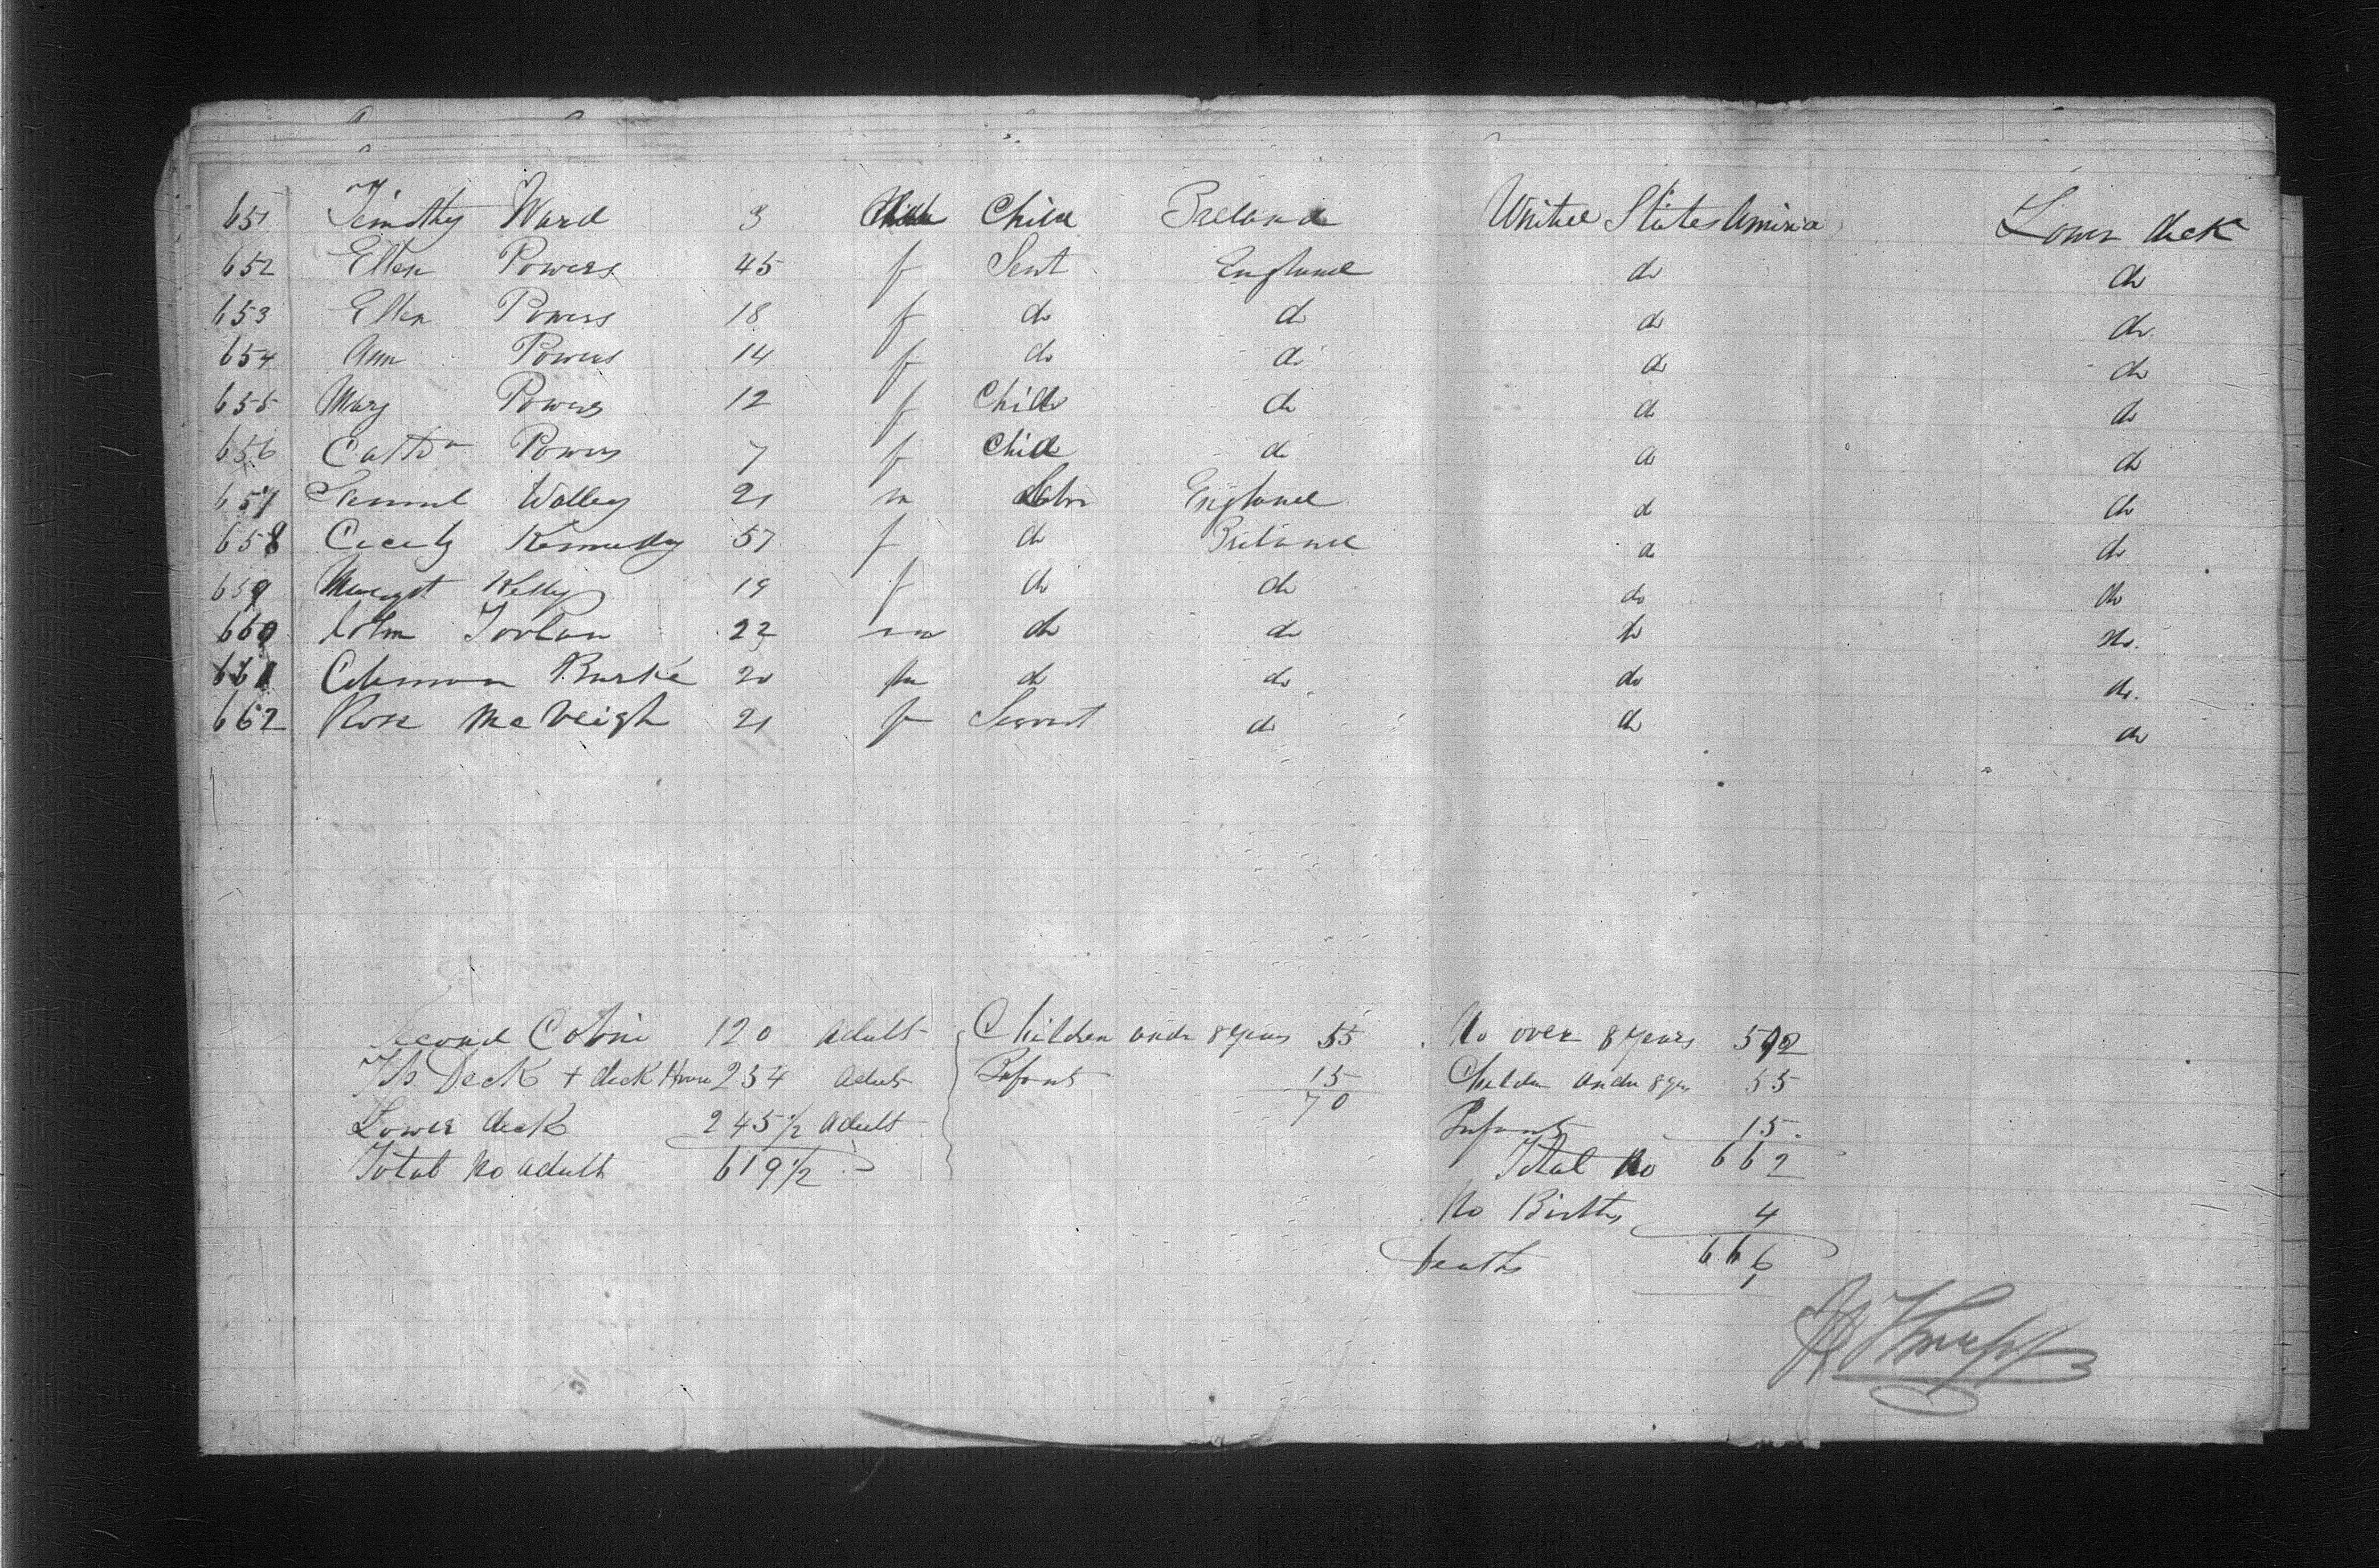 651 Timothy Ward 3 Child Ireland United States America Lower deck
652 Ellen Powers 45 f Sent England do do
653 Ellen Powers 18 f do do do do
654 Ann Powers 14 f do do do do
655 Mary Powers 12 f Child do do do
656 Powers 7 f Child do do do
657 Samuel Walley 21 m England do do
658 Cecely Kennedy 57 f do Ireland do do
659 Margt Kelly 19 f do do do do
660 22 m do do do do
661 Coleman Burke 20 m do do do do
662 Rose McVeigh 21 f Servant do do do
Second Cabin 120 adult Children under 8 years 55 No over 8 years 592
Deck + deck House 254 adult Infants 15 Children under 8 yrs 55
70
Lower deck 245 1/2 adult Infants 15
Total No adult 619 1/2 Total No 662
No Births 4
666
Deaths 1